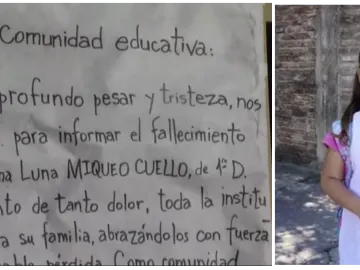 Comunidad educativa:
profundo pesar y tristeza, nos
para informar el fallecimiento
na Luna MIQUEO CUELLO, de 1° D.
nto de tanto dolor, toda la institu
a su familia, abrazándolos con fuerza
pérdida. Como comunidad